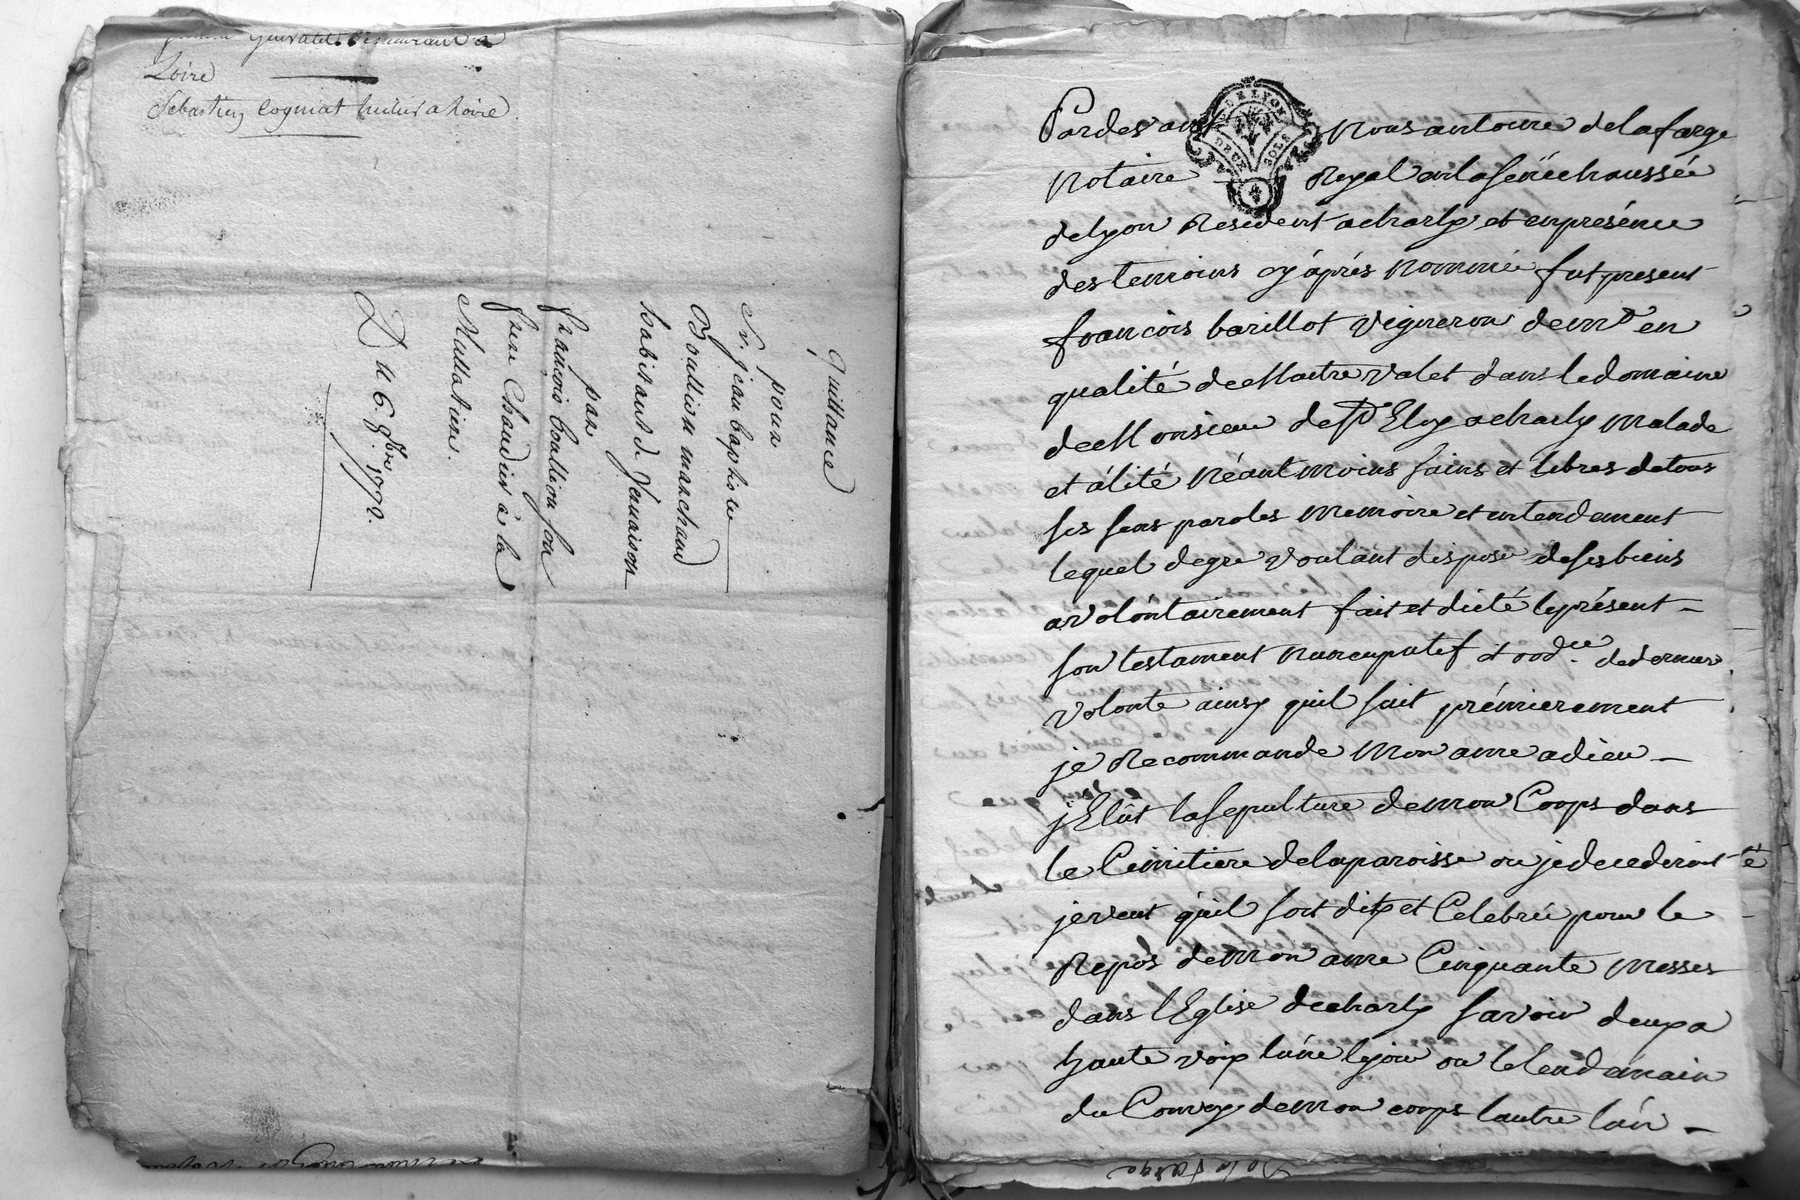 demeurant a
Loire
Sebastien Cogniat a Loire.
quittance
pour
Sr. jean baptiste
Boullion marchand
habitant de Venaison
par
françois boullion son
frere Chaudier à la
Mullatiere.
Du 6. 8bre 1772.
GE. DE LYON
DEUX SOLS
4
Pardevant Nous antoine delafarge
Notaire Royal en la sénéchaussée
delyon Resident acharly et enprésence
des temoins cy après Nommée fut present
francois barillot Vigneron demt en
qualité de Maitre valet dans le domaine
de Monsieur de St Eloy acharly Malade
et alité Néantmoins sains et libres detous
ses sens paroles Memoire et entendement
lequel degré voulant disposer desesbiens
avolontairement fait et dicté leprésent
son testament Nuncupatif et ordce dedernier
volonté ainsy quil suit prémierement
je Recommande Mon ame adieu
jElût lasepulture demon Corps dans
le Cimitiere delaparoisse ou jedecederait et
jeveut quil soit dit et Celebrée pour le
Repos demon ame Cinquante Messes
dans l'Eglise decharly savoir deux a
haute voix lune lejour ou lelendemain
du Convoy demon corps lautre lan